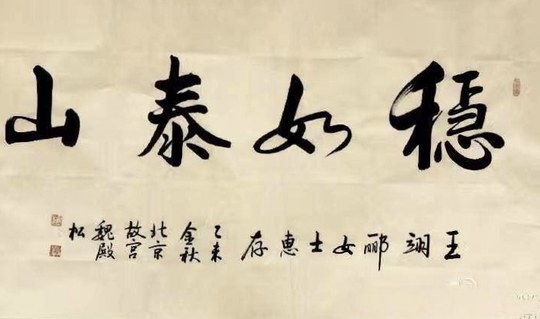 穩如泰山
王翊郦女士惠存
乙未
金秋
北京
故宫
魏殿
松